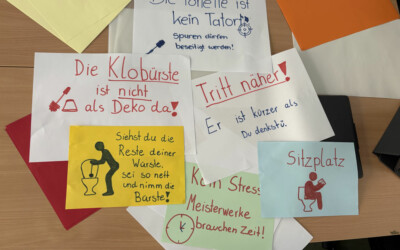 Die Toilette ist
kein Tatort
Spuren dürfen
beseitigt werden!
Die Klobürste
ist nicht
als Deko da!
Tritt näher!
Er ist kürzer als
Du denkst
Siehst du die
Reste deiner
Würste,
sei so nett
und nimm die
Bürste!
Sitzplatz
Kein Stress
Meisterwerke
brauchen Zeit!